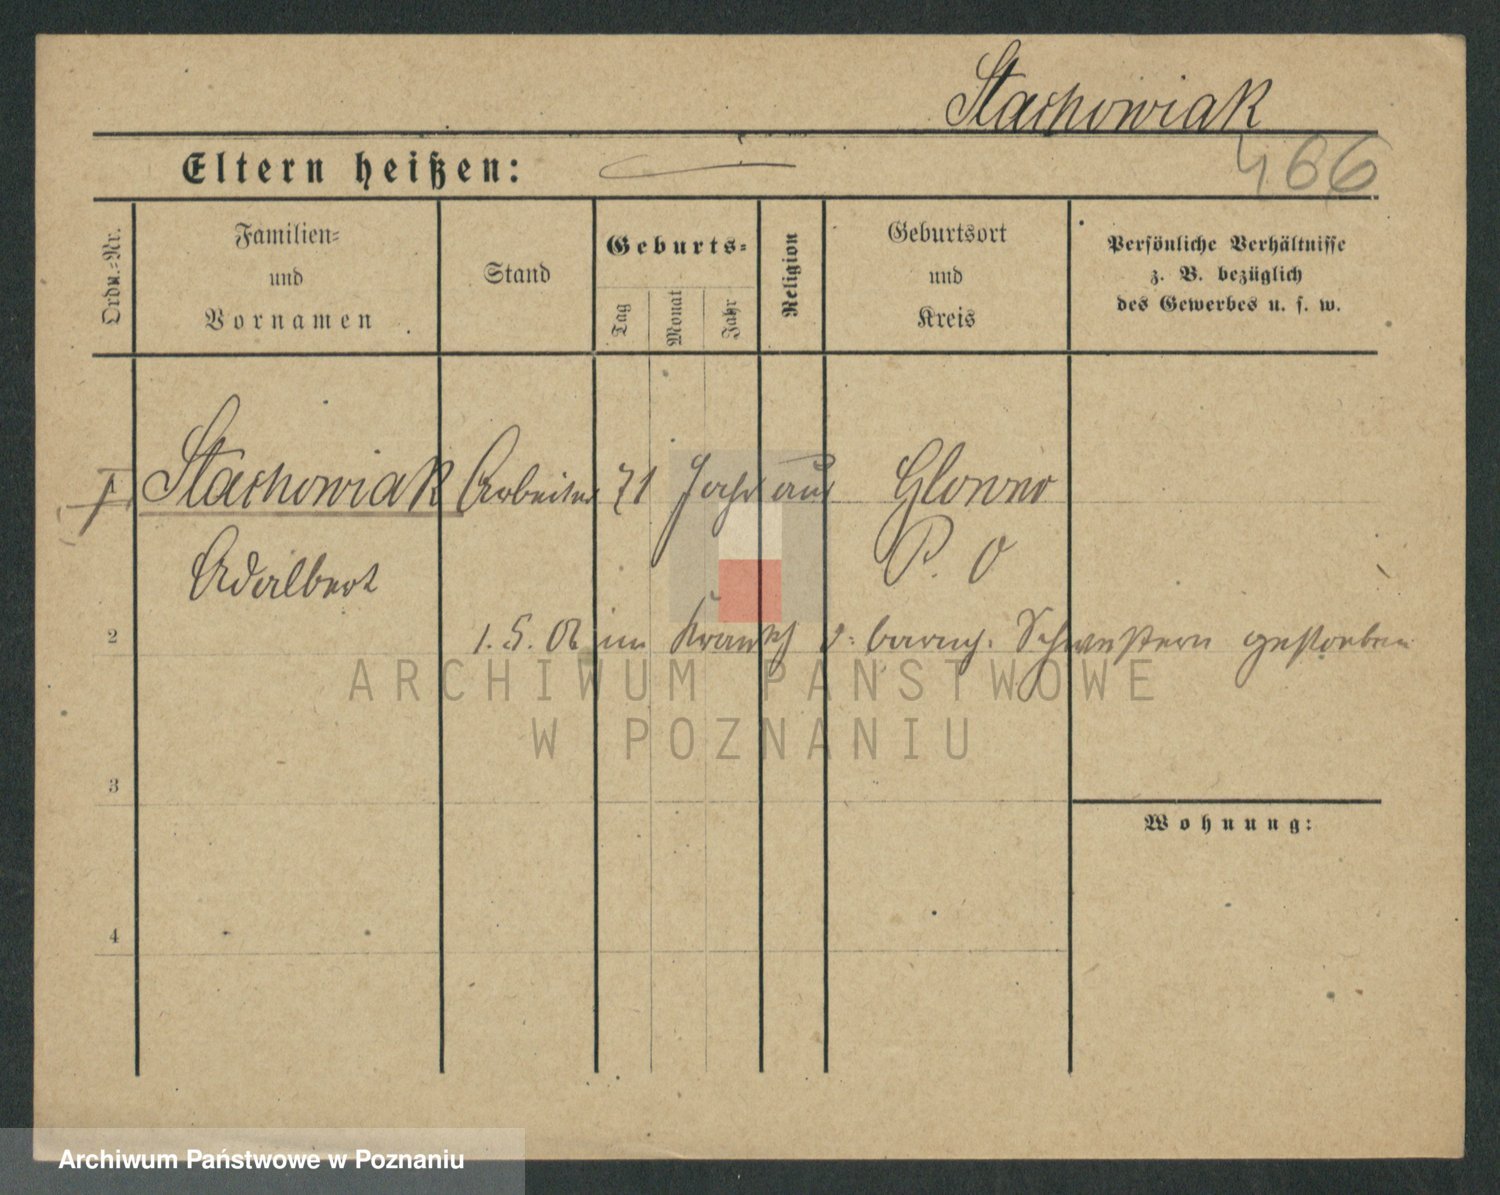 Stachowiak
Eltern heißen:
466
Ordn.-Nr.
Familien-
und
Vornamen
Stand
Geburts-
Tag
Monat
Jahr
Religion
Geburtsort
und
Kreis
Persönliche Verhältnisse
z. B. bezüglich
des Gewerbes u. s. w.
Stachowiak Arbeiter 71 Jahr aus Glowno
Adalbert P. O
2
1. 5. 06 im Krankh d: barmh. Schwestern gestorben
ARCHIWUM PAŃSTWOWE
W POZNANIU
3
Wohnung:
4
Archiwum Państwowe w Poznaniu